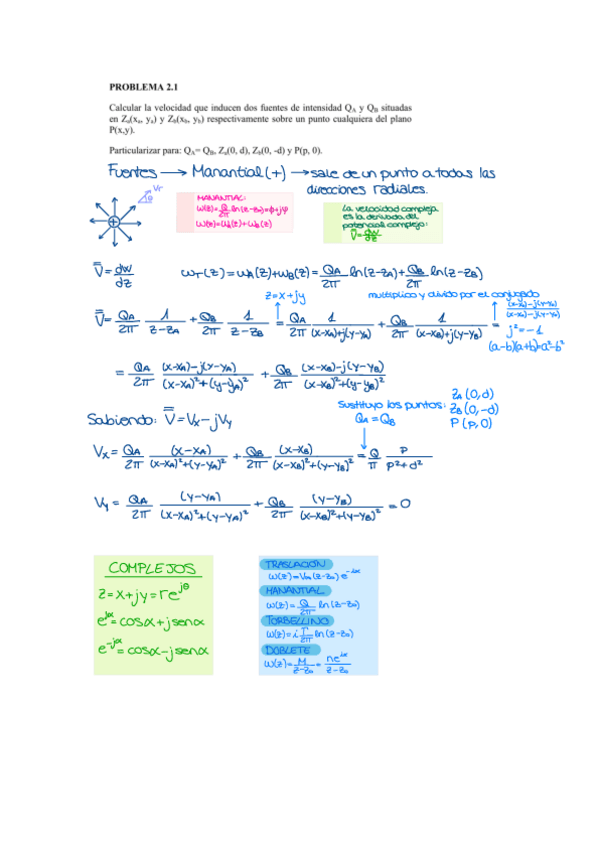 PROBLEMA 2.1
Calcular la velocidad que inducen dos fuentes de intensidad Q_A y Q_B situadas
en Z_a(x_a, y_a) y Z_b(x_b, y_b) respectivamente sobre un punto cualquiera del plano
P(x,y).
Particularizar para: Q_A= Q_B, Z_a(0, d), Z_b(0, -d) y P(p, 0).
Fuentes → Manantial (+) → sale de un punto a todas las
direcciones radiales.
Vr
θ
+
MANANTIAL:
ω(z)=Q/2π ln(z-z₀)=φ+jψ
ω(z)=ω_A(z)+ω_B(z)
La velocidad compleja
es la derivada del
potencial complejo:
V̄=dW/dz
V̄=dw/dz ω_T(z)=ω_A(z)+ω_B(z)=Q_A/2π ln(z-z_A)+Q_B/2π ln(z-z_B)
z=x+jy
multiplico y divido por el conjugado
(x-x_A)-j(y-y_A)/(x-x_A)-j(y-y_A)
V̄=Q_A/2π 1/(z-z_A) + Q_B/2π 1/(z-z_B) = Q_A/2π 1/((x-x_A)+j(y-y_A)) + Q_B/2π 1/((x-x_B)+j(y-y_B)) =
j²=-1
(a-b)(a+b)=a²-b²
= Q_A/2π ((x-x_A)-j(y-y_A))/((x-x_A)²+(y-y_A)²) + Q_B/2π ((x-x_B)-j(y-y_B))/((x-x_B)²+(y-y_B)²)
Sabiendo: V̄=Vx-jVy
Sustituyo los puntos:
Q_A=Q_B
Z_A(0,d)
Z_B(0,-d)
P(p,0)
Vx= Q_A/2π (x-x_A)/((x-x_A)²+(y-y_A)²) + Q_B/2π (x-x_B)/((x-x_B)²+(y-y_B)²) = Q/π p/(p²+d²)
Vy= Q_A/2π (y-y_A)/((x-x_A)²+(y-y_A)²) + Q_B/2π (y-y_B)/((x-x_B)²+(y-y_B)²) =0
COMPLEJOS
z=x+jy=re^jθ
e^jα=cosα+jsenα
e^-jα=cosα-jsenα
TRASLACIÓN
ω(z)=V∞(z-z₀)e^-iα
MANANTIAL
ω(z)=Q/2π ln(z-z₀)
TORBELLINO
ω(z)=i Γ/2π ln(z-z₀)
DOBLETE
ω(z)=M/(z-z₀)=me^iα/(z-z₀)